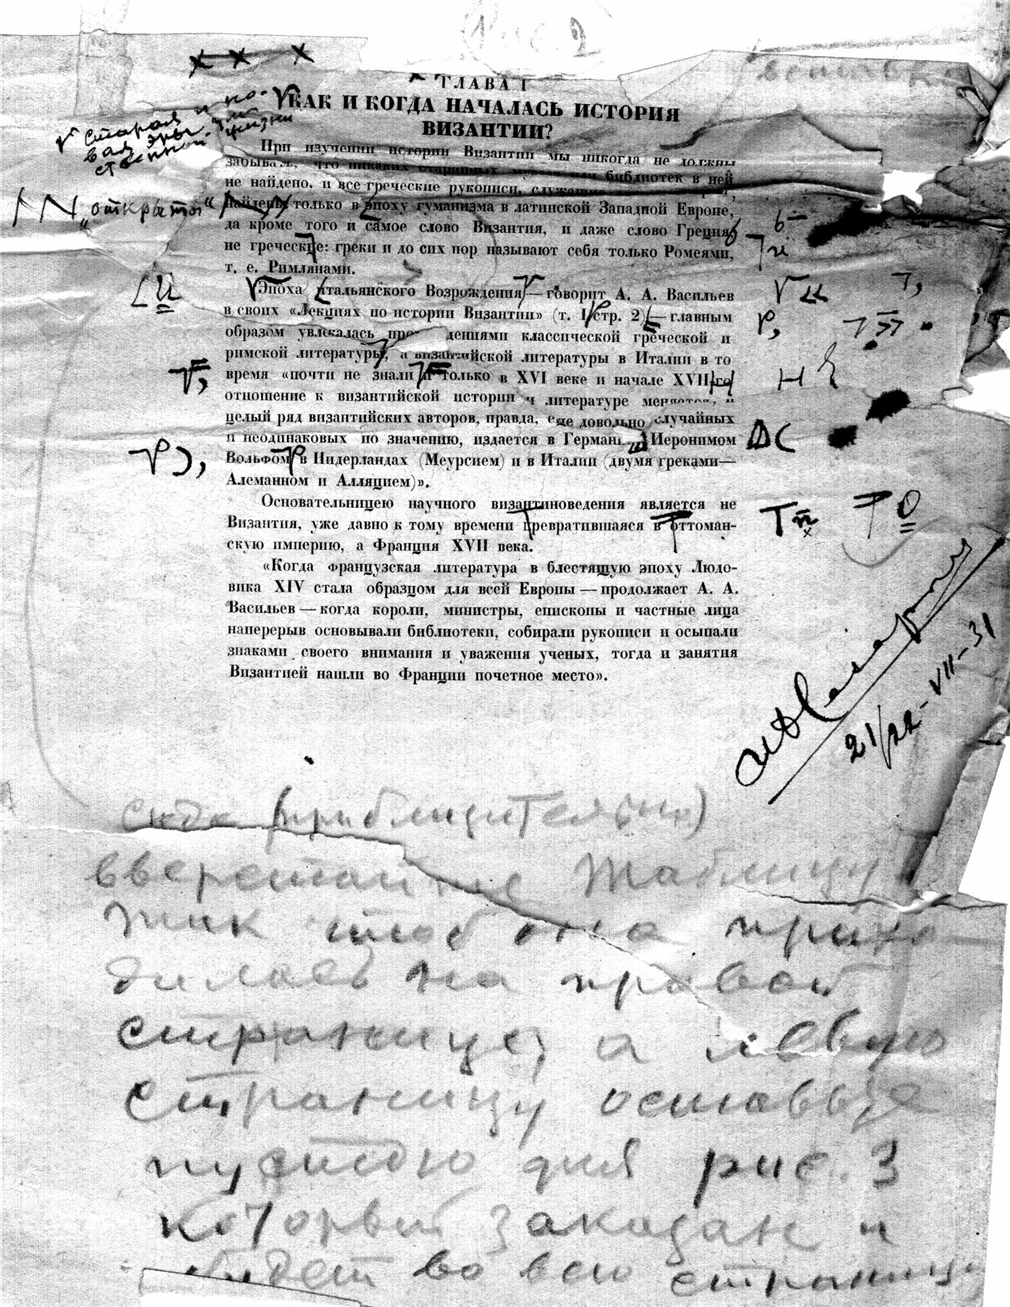 (Рис. 2
вставка
х х х
ГЛАВА I
КАК И КОГДА НАЧАЛАСЬ ИСТОРИЯ
ВИЗАНТИИ?
Старая и но-
вая эры.
ственной жизни
При изучении истории Византии мы никогда не должны
забывать, что никаких старинных библиотек в ней
не найдено, и все греческие рукописи,
найдены только в эпоху гуманизма в латинской Западной Европе,
„открыты“
да кроме того и самое слово Византия, и даже слово Греция
не греческие: греки и до сих пор называют себя только Ромеями,
т. е. Римлянами.
Эпоха итальянского Возрождения — говорит А. А. Васильев
в своих «Лекциях по истории Византии» (т. I стр. 2) — главным
образом увлекалась классической греческой и
римской литературы, а византийской литературы в Италии в то
время «почти не знали и только в XVI веке и начале XVII го
отношение к византийской истории и литературе меняется, и
целый ряд византийских авторов, правда, еще довольно случайных
и неодинаковых по значению, издается в Германии Иеронимом
Вольфом в Нидерландах (Меурсием) и в Италии (двумя греками—
Алеманном и Алляцием)».
Основательницею научного византиноведения является не
Византия, уже давно к тому времени превратившаяся в оттоман-
скую империю, а Франция XVII века.
«Когда французская литература в блестящую эпоху Людо-
вика XIV стала образцом для всей Европы — продолжает А. А.
Васильев — когда короли, министры, епископы и частные лица
наперерыв основывали библиотеки, собирали рукописи и осыпали
знаками своего внимания и уважения ученых, тогда и занятия
Византией нашли во Франции почетное место».
21/22-VII-31
сюда (приблизительно)
вверстайте таблицу
так чтоб она прихо-
дилась на правой
странице, а левую
страницу оставьте
пустою для рис. 3
который заказан и
будет во всю страницу